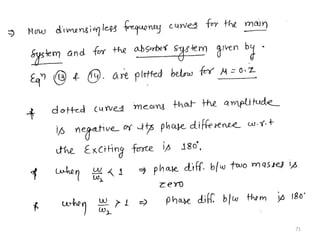 ⇒ Now dimensionless frequency curves for the main
system and for the absorber system given by
Eqⁿ (13) & (14) . are plotted below for μ = 0.2
* dotted curves means that the amplitude
is negative or its phase difference w.r.t
the Exciting force is 180°.
* when ω/ω₂ < 1 ⇒ phase diff. b/w two masses is
zero
* when ω/ω₂ > 1 ⇒ phase diff. b/w them is 180°
71